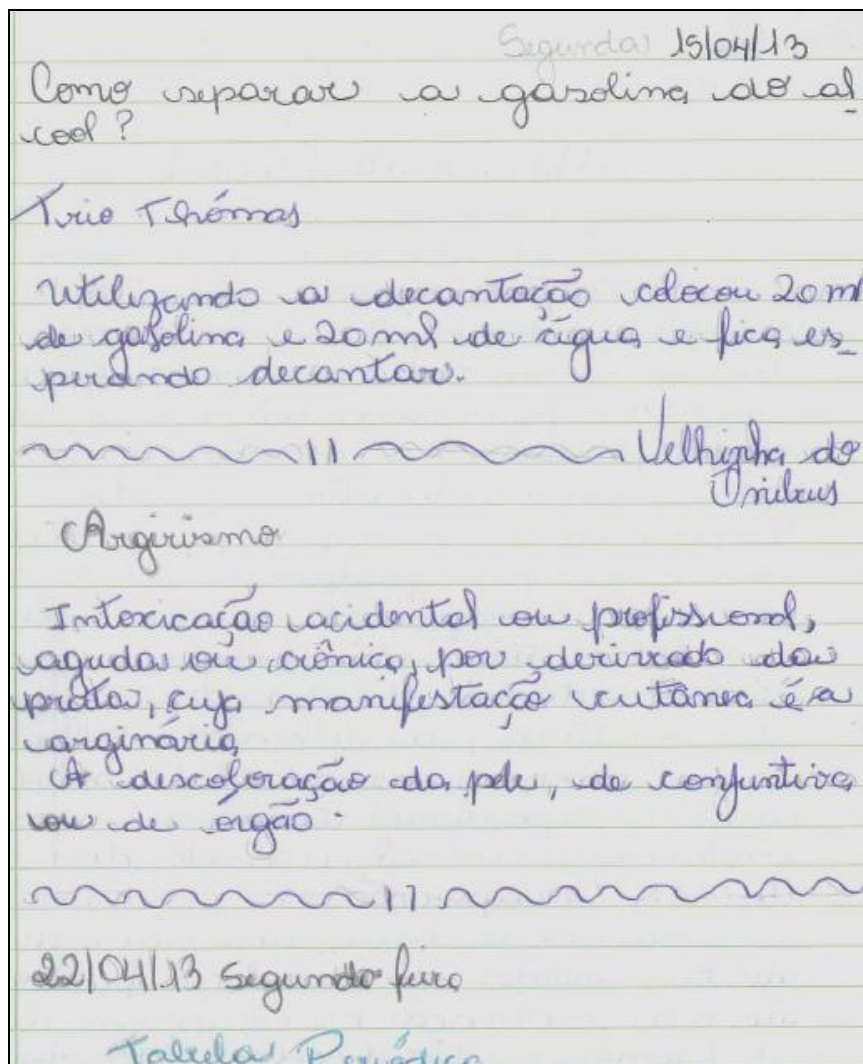 Segunda 15/04/13
Como separar a gasolina do al
cool?
Trio Thómas
Utilizando a decantação colocou 20ml
de gasolina e 20ml de água e fica es_
perando decantar.
Velhinha do
Ônibus
Argirismo
Intoxicação acidental ou profissional,
aguda ou crônica, por derivado da
prata, cuja manifestação cutânea é a
arginária
A descoloração da pele, de conjuntiva
ou de órgão.
22/04/13 Segunda feira
Tabela Periódica